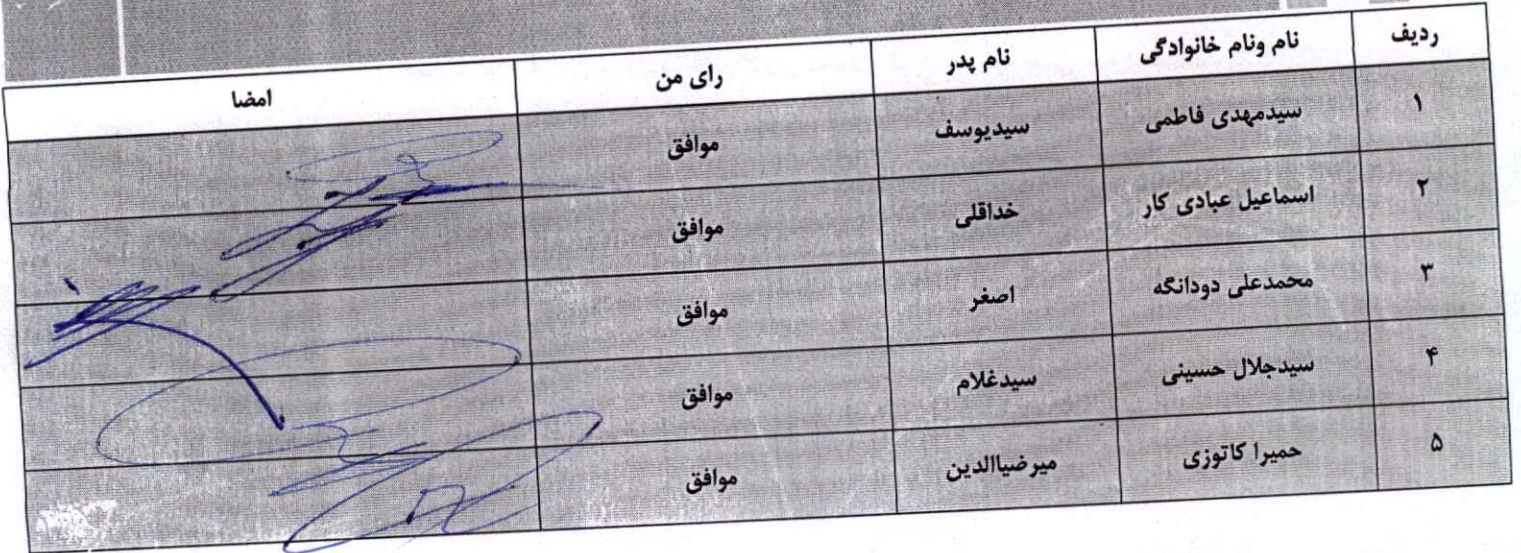 ردیف نام ونام خانوادگی نام پدر رای من امضا
۱ سیدمهدی فاطمی سیدیوسف موافق
۲ اسماعیل عبادی کار خداقلی موافق
۳ محمدعلی دودانگه اصغر موافق
۴ سیدجلال حسینی سیدغلام موافق
۵ حمیرا کاتوزی میرضیاالدین موافق